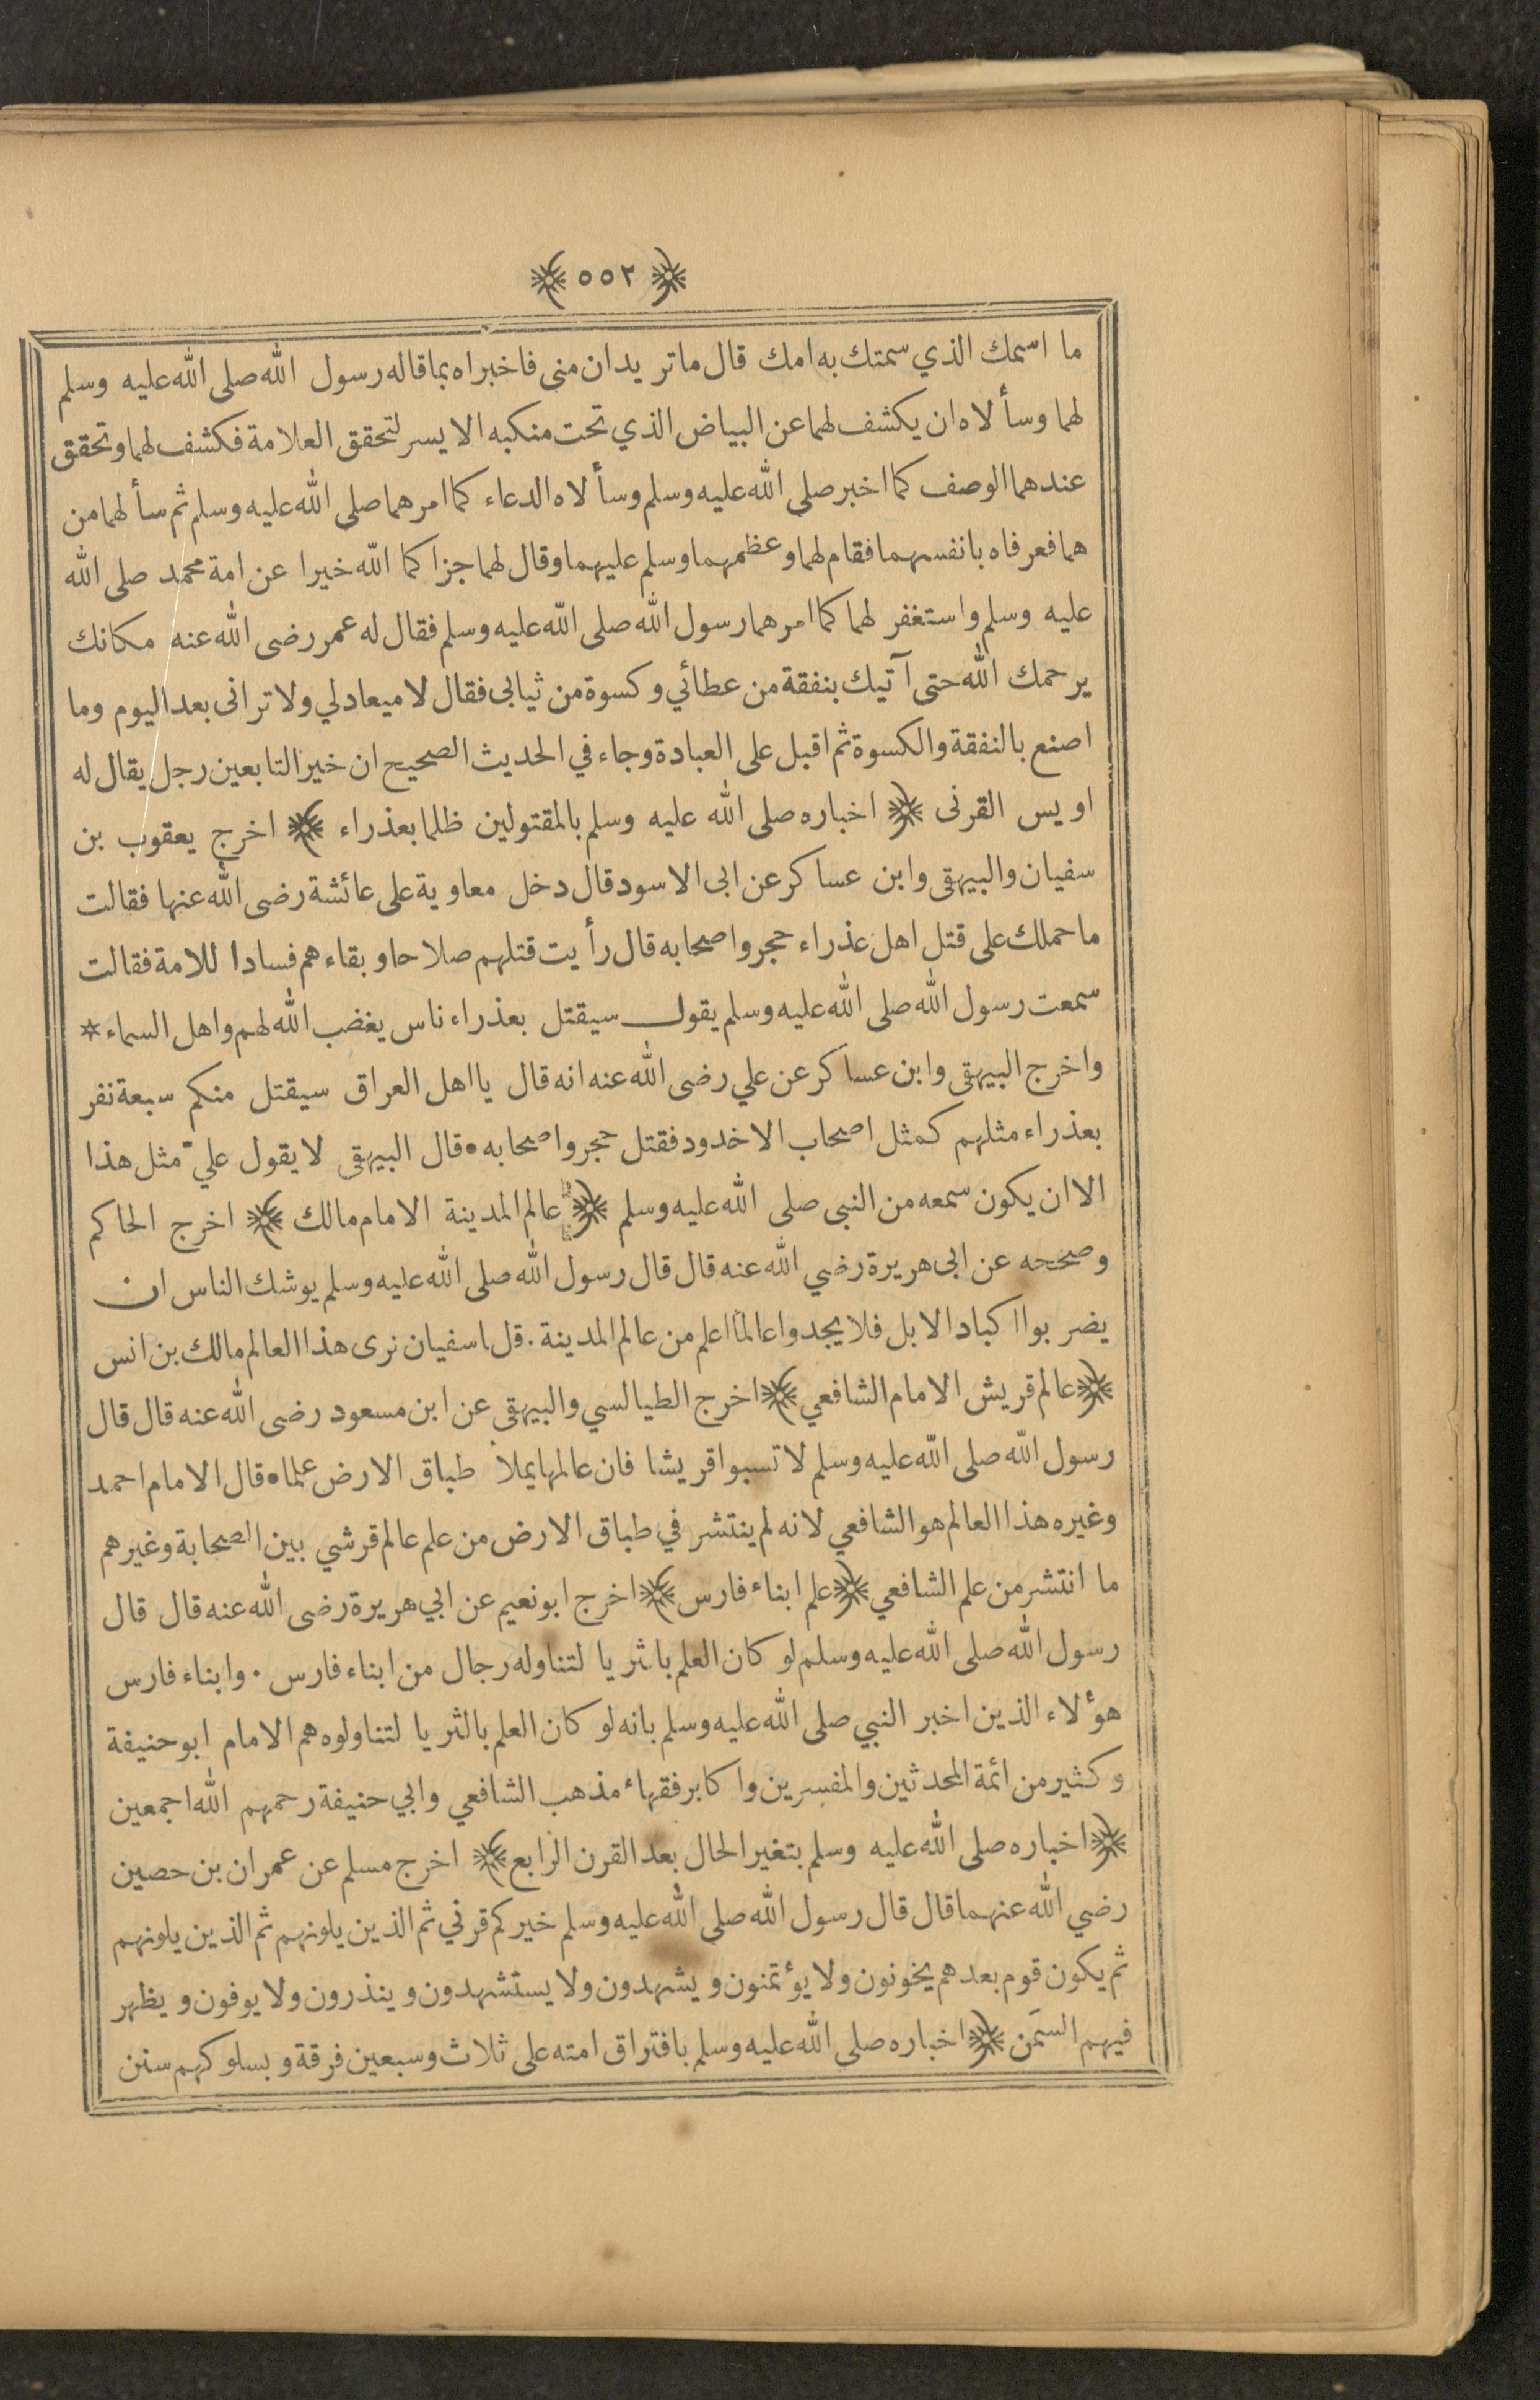 ﴿ ٥٥٢ ﴾
ما اسمك الذي سمتك به امك قال ما تريدان منى فاخبراه بما قاله رسول الله صلى الله عليه وسلم
لهما وسألاه ان يكشف لهما عن البياض الذي تحت منكبه الايسر لتحقق العلامة فكشف لهما وتحقق
عندهما الوصف كما اخبر صلى الله عليه وسلم وسألاه الدعاء كما امرهما صلى الله عليه وسلم ثم سألهما من
هما فعرفاه بانفسهما فقام لهما وعظمهما وسلم عليهما وقال لهما جزاكما الله خيرا عن امة محمد صلى الله
عليه وسلم واستغفر لهما كما امرهما رسول الله صلى الله عليه وسلم فقال له عمر رضى الله عنه مكانك
يرحمك الله حتى آتيك بنفقة من عطائي وكسوة من ثيابى فقال لا ميعاد لي ولا ترانى بعد اليوم وما
اصنع بالنفقة والكسوة ثم اقبل على العبادة وجاء في الحديث الصحيح ان خير التابعين رجل يقال له
اويس القرنى ﴿ اخباره صلى الله عليه وسلم بالمقتولين ظلما بعذراء ﴾ اخرج يعقوب بن
سفيان والبيهقى وابن عساكر عن ابى الاسود قال دخل معاوية على عائشة رضى الله عنها فقالت
ما حملك على قتل اهل عذراء حجر واصحابه قال رأيت قتلهم صلاحا وبقاءهم فسادا للامة فقالت
سمعت رسول الله صلى الله عليه وسلم يقول سيقتل بعذراء ناس يغضب الله لهم واهل السماء *
واخرج البيهقى وابن عساكر عن علي رضى الله عنه انه قال يا اهل العراق سيقتل منكم سبعة نفر
بعذراء مثلهم كمثل اصحاب الاخدود فقتل حجر واصحابه • قال البيهقى لا يقول عليّ مثل هذا
الا ان يكون سمعه من النبى صلى الله عليه وسلم ﴿ عالم المدينة الامام مالك ﴾ اخرج الحاكم
وصححه عن ابى هريرة رضي الله عنه قال قال رسول الله صلى الله عليه وسلم يوشك الناس ان
يضربوا اكباد الابل فلا يجدوا عالما اعلم من عالم المدينة . قل ا سفيان نرى هذا العالم مالك بن انس
﴿ عالم قريش الامام الشافعي ﴾ اخرج الطيالسي والبيهقى عن ابن مسعود رضى الله عنه قال قال
رسول الله صلى الله عليه وسلم لا تسبوا قريشا فان عالمها يملأ طباق الارض علما • قال الامام احمد
وغيره هذا العالم هو الشافعي لانه لم ينتشر في طباق الارض من علم عالم قرشي بين الصحابة وغيرهم
ما انتشر من علم الشافعي ﴿ علم ابناء فارس ﴾ اخرج ابو نعيم عن ابي هريرة رضى الله عنه قال قال
رسول الله صلى الله عليه وسلم لو كان العلم بالثريا لتناوله رجال من ابناء فارس . وابناء فارس
هؤلاء الذين اخبر النبي صلى الله عليه وسلم بانه لو كان العلم بالثريا لتناولوه هم الامام ابو حنيفة
وكثير من ائمة المحدثين والمفسرين واكابر فقهاء مذهب الشافعي وابي حنيفة رحمهم الله اجمعين
﴿ اخباره صلى الله عليه وسلم بتغير الحال بعد القرن الرابع ﴾ اخرج مسلم عن عمران بن حصين
رضي الله عنهما قال قال رسول الله صلى الله عليه وسلم خيركم قرني ثم الذين يلونهم ثم الذين يلونهم
ثم يكون قوم بعدهم يخونون ولا يؤتمنون ويشهدون ولا يستشهدون وينذرون ولا يوفون ويظهر
فيهم السمن ﴿ اخباره صلى الله عليه وسلم بافتراق امته على ثلاث وسبعين فرقة وبسلوكهم سنن